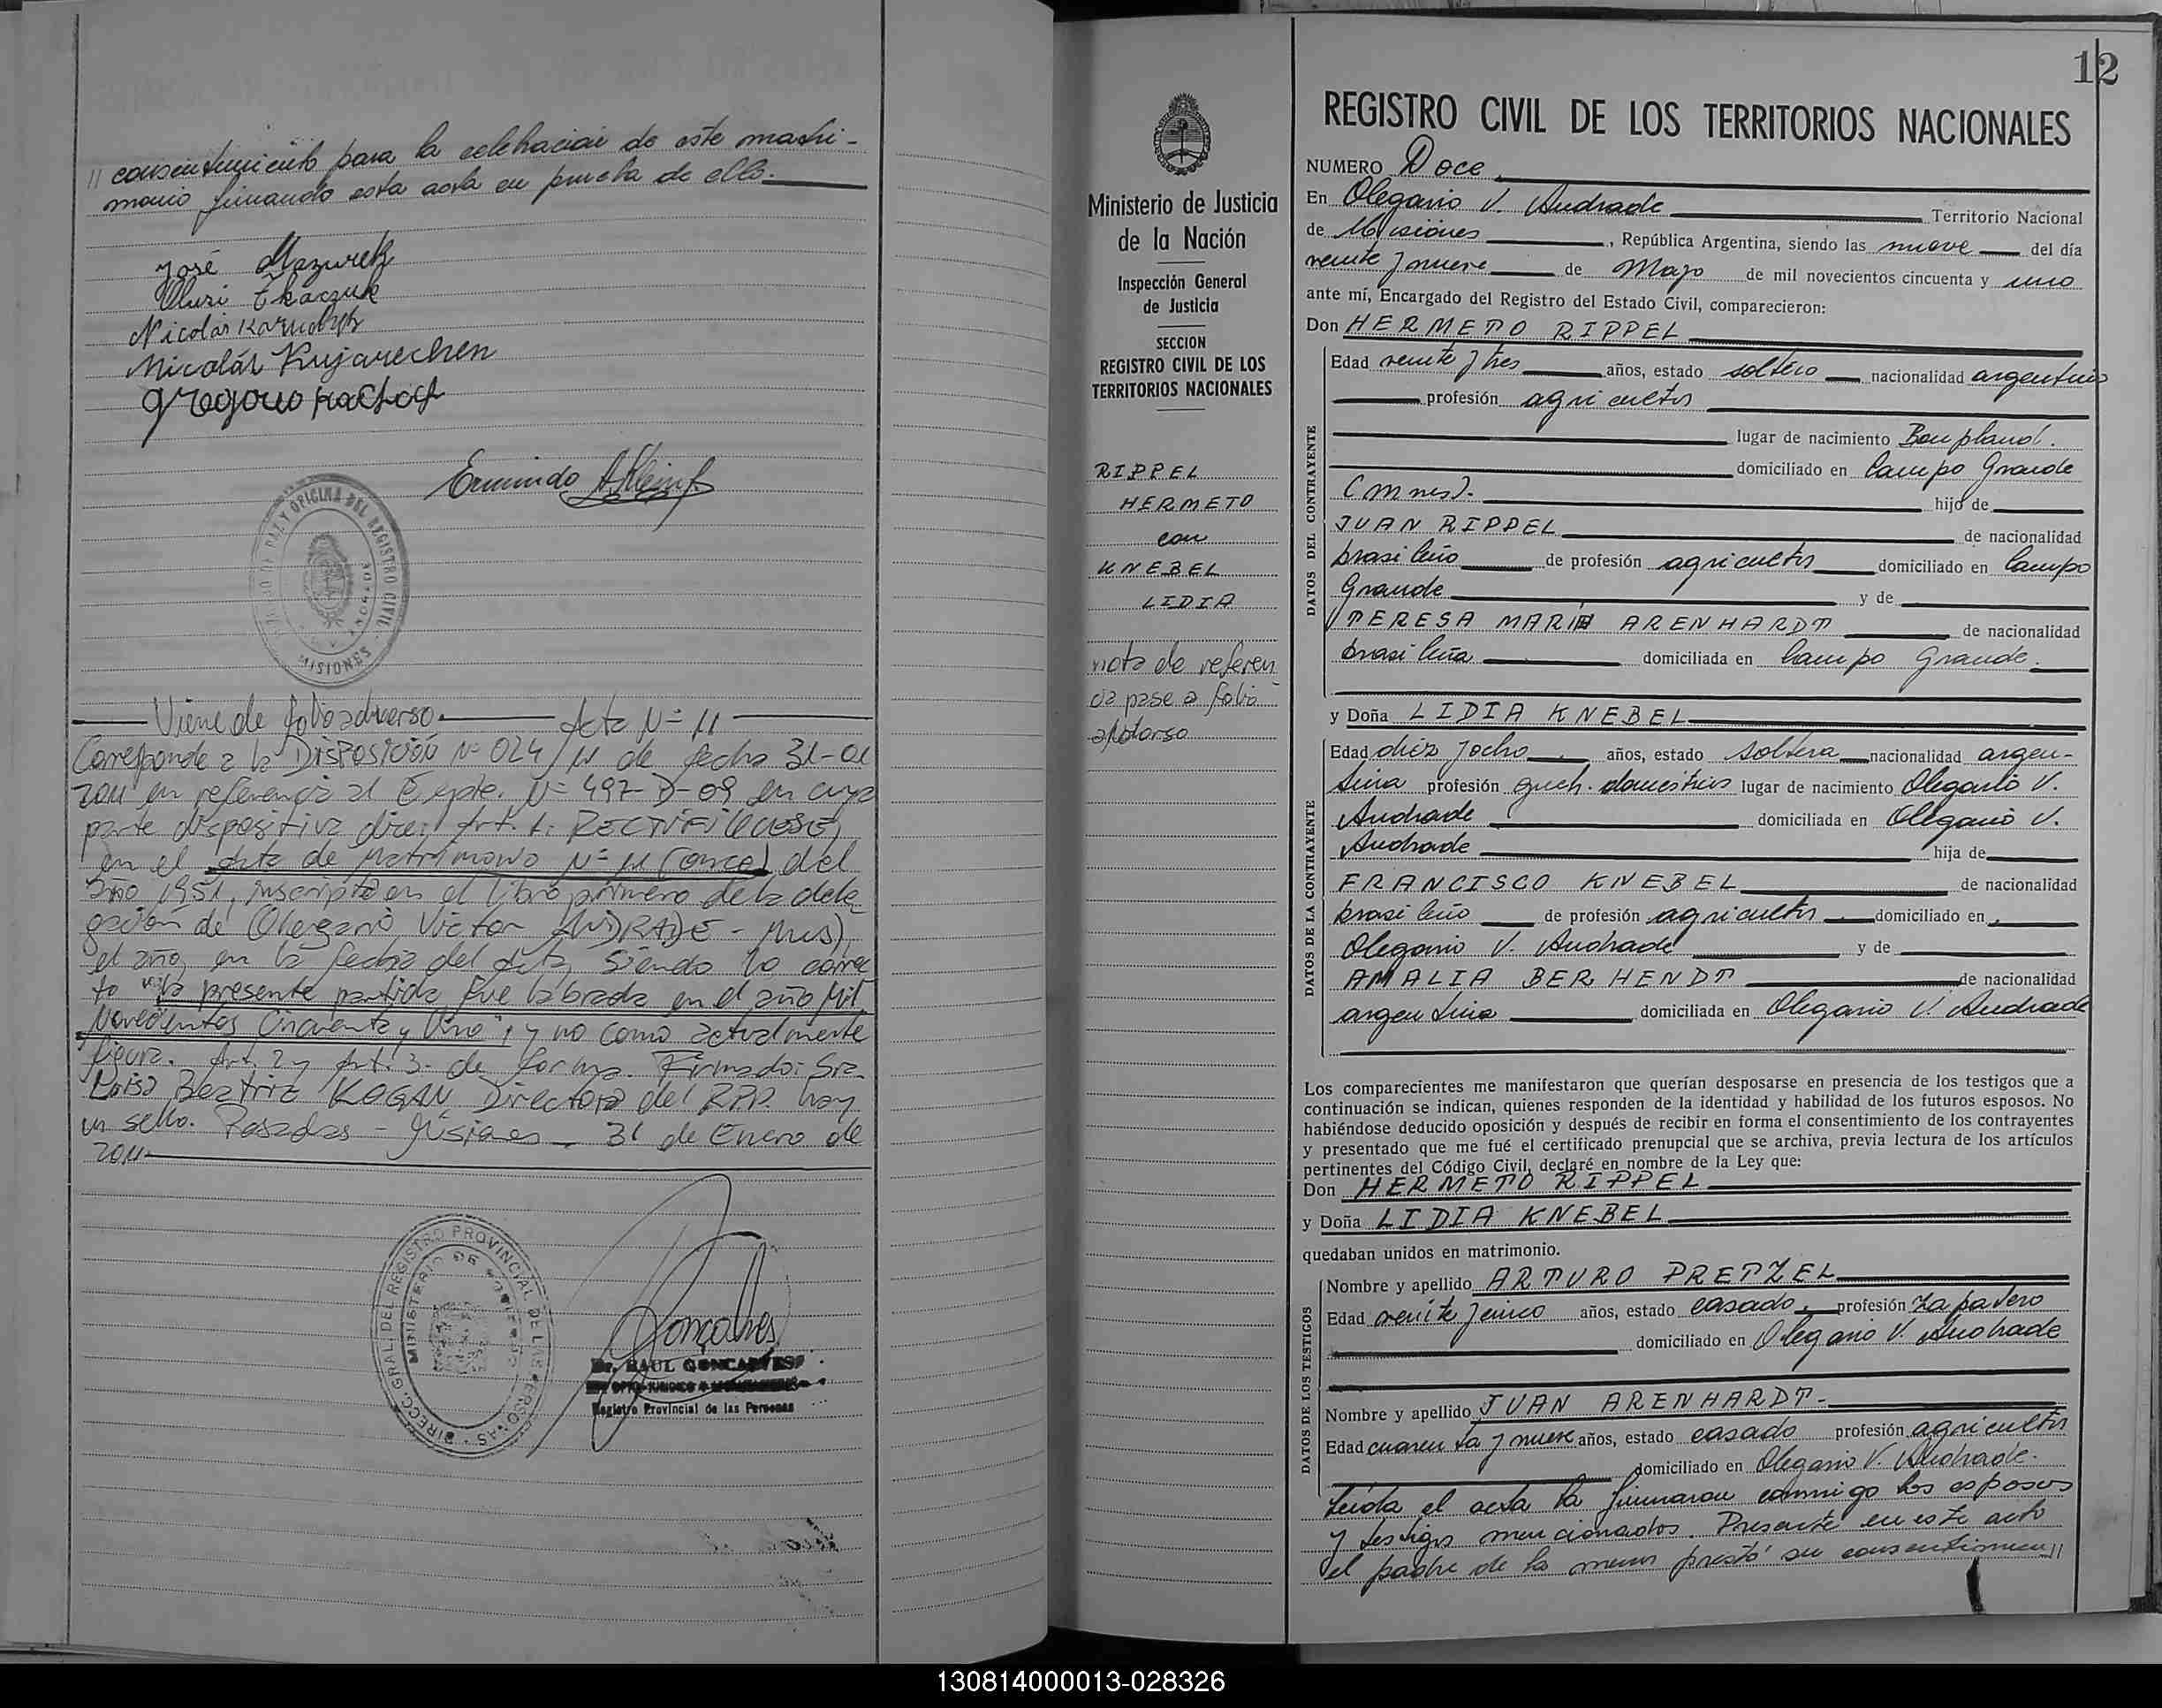 // consentimiento para la celebracion de este matri-
monio firmando esta acta en prueba de ello.
José Mazurek
Nicolás Kujarechen
Ermindo A. Klein
OFICINA DEL REGISTRO CIVIL
MISIONES
Viene de folio adverso. Acta Nº 11
Corresponde a la DISPOSICIÓN Nº 024/11 de fecha 31-01
2011 en referencia al Expte. Nº 497-D-09 en cuya
parte dispositiva dice: Art. 1: RECTIFIQUESE,
en el Acta de Matrimonio Nº 11 (once) del
año 1951, inscripta en el libro primero de la dele
gación de (Olegario Víctor ANDRADE - Mnes),
el año, en la fecha del Acta, siendo lo correc
to "la presente partida fue labrada en el año Mil
Novecientos Cincuenta y Uno", y no como actualmente
figura. Art. 2 y Art. 3. de forma. Firmado: Sra.
Luisa Beatriz KOGAN Directora del RPP. hay
un sello. Posadas - Misiones - 31 de Enero de
2011
DIRECC. GRAL. DEL REGISTRO PROVINCIAL DE LAS PERSONAS
MINISTERIO DE GOBIERNO
Goncalves
Dr. RAUL GONCALVES
Registro Provincial de las Personas
12
Ministerio de Justicia
de la Nación
Inspección General
de Justicia
SECCION
REGISTRO CIVIL DE LOS
TERRITORIOS NACIONALES
RIPPEL
HERMETO
con
KNEBEL
LIDIA
nota de referen
cia pase a folio
REGISTRO CIVIL DE LOS TERRITORIOS NACIONALES
NUMERO Doce
En Olegario V. Andrade Territorio Nacional
de Misiones, República Argentina, siendo las nueve del día
veinte y nueve de Mayo de mil novecientos cincuenta y uno
ante mí, Encargado del Registro del Estado Civil, comparecieron:
Don HERMETO RIPPEL
DATOS DEL CONTRAYENTE
Edad veinte y tres años, estado soltero nacionalidad argentino
profesión agricultor
lugar de nacimiento Bonpland.
domiciliado en Campo Grande
(Mnes). hijo de
JUAN RIPPEL de nacionalidad
brasileño de profesión agricultor domiciliado en Campo
Grande y de
TERESA MARIA ARENHARDT de nacionalidad
brasileña domiciliada en Campo Grande.
y Doña LIDIA KNEBEL
DATOS DE LA CONTRAYENTE
Edad diez y ocho años, estado soltera nacionalidad argen-
tina profesión queh. domésticos lugar de nacimiento Olegario V.
Andrade domiciliada en Olegario V.
Andrade hija de
FRANCISCO KNEBEL de nacionalidad
brasileño de profesión agricultor domiciliado en
Olegario V. Andrade y de
AMALIA BERHENDT de nacionalidad
argentina domiciliada en Olegario V. Andrade
Los comparecientes me manifestaron que querían desposarse en presencia de los testigos que a
continuación se indican, quienes responden de la identidad y habilidad de los futuros esposos. No
habiéndose deducido oposición y después de recibir en forma el consentimiento de los contrayentes
y presentado que me fué el certificado prenupcial que se archiva, previa lectura de los artículos
pertinentes del Código Civil, declaré en nombre de la Ley que:
Don HERMETO RIPPEL
y Doña LIDIA KNEBEL
quedaban unidos en matrimonio.
DATOS DE LOS TESTIGOS
Nombre y apellido ARTURO PRETZEL
Edad veinte y cinco años, estado casado, profesión zapatero
domiciliado en Olegario V. Andrade
Nombre y apellido JUAN ARENHARDT
Edad cuarenta y nueve años, estado casado profesión agricultor
domiciliado en Olegario V. Andrade.
Leída el acta la firmaron conmigo los esposos
y testigos mencionados. Presente en este acto
el padre de la menor prestó su consentimien//
130814000013-028326